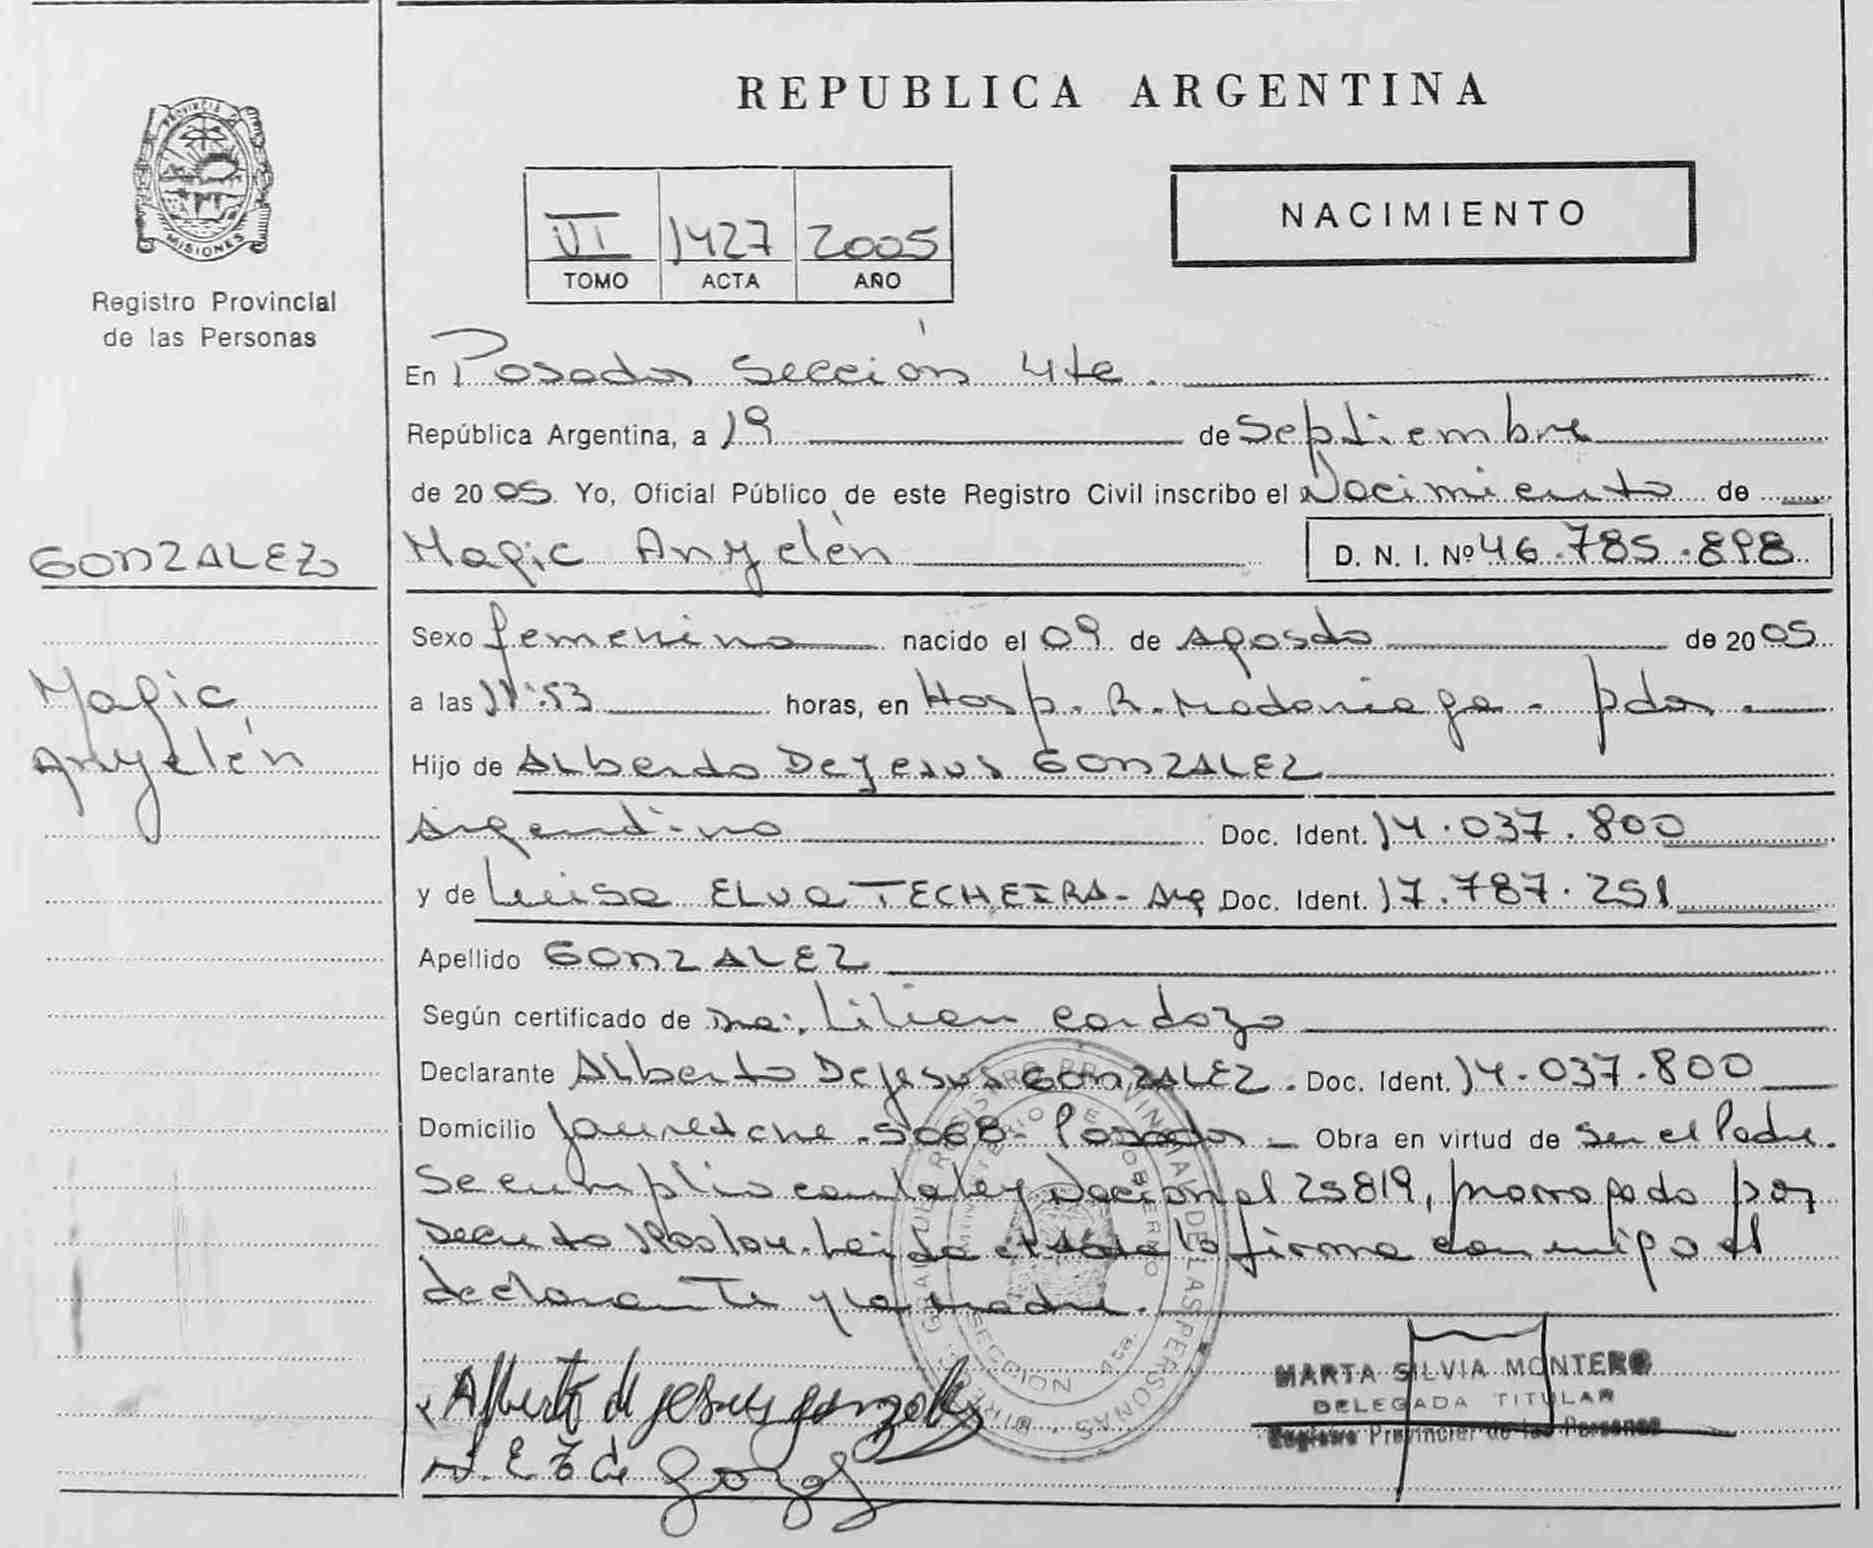 REPUBLICA ARGENTINA
PROVINCIA DE
MISIONES
Registro Provincial
de las Personas
NACIMIENTO
VI 1427 2005
TOMO ACTA AÑO
En Posadas Sección 4ta.
República Argentina, a 19 de Septiembre
de 2005. Yo, Oficial Público de este Registro Civil inscribo el Nacimiento de
GONZALEZ
Magic Anyelén D. N. I. Nº 46.785.898
Sexo femenino nacido el 09 de Agosto de 2005
Magic
Anyelén
a las 11:53 horas, en Hosp. R. Madariaga - pdas.
Hijo de Alberto Dejesus GONZALEZ
Argentino Doc. Ident. 14.037.800
y de Luisa ELVA TECHEIRA - Arg Doc. Ident. 17.787.251
Apellido GONZALEZ
Según certificado de Dra: Lilian Cardozo
Declarante Alberto Dejesus GONZALEZ. Doc. Ident. 14.037.800
Domicilio Jauretche 5068 - Posadas - Obra en virtud de Ser el Padre.
Se cumplio con la ley Nacional 25819, prorrogado por
Decreto Leida el acta la firma conmigo el
declarante y la madre.
Alberto de jesus gonzalez
L. E T de Gonz
MARTA SILVIA MONTERO
DELEGADA TITULAR
Registro Provincial de las Personas